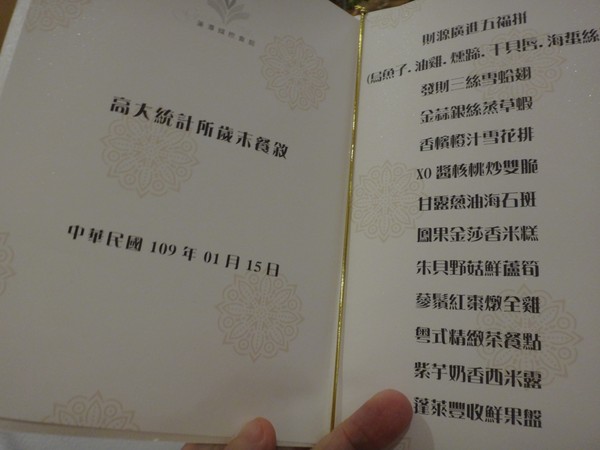 高大統計所歲末餐敘
中華民國 109 年 01 月 15 日
財源廣進五福拼
(烏魚子．油雞．燻蹄．干貝唇．海蜇絲
發財三絲雪蛤翅
金蒜銀絲蒸草蝦
香檳橙汁雪花排
XO 醬核桃炒雙脆
甘露蔥油海石斑
鳳果金莎香米糕
朱貝野菇鮮蘆筍
蔘鬚紅棗燉全雞
粵式精緻茶餐點
紫芋奶香西米露
蓬萊豐收鮮果盤